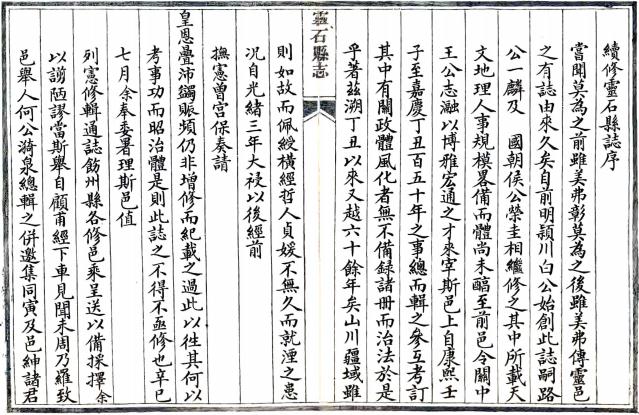 續修靈石縣誌序
嘗聞莫為之前雖美弗彰莫為之後雖美弗傳靈邑
之有誌由來久矣自前明潁川白公始創此誌嗣路
公一麟及　國朝侯公榮圭相繼修之其中所載天
文地理人事規模畧備而體尚未醕至前邑令關中
王公志瀜以博雅宏通之才來宰斯邑上自康熙壬
子至嘉慶丁丑百五十年之事總而輯之參互考訂
其中有關政體風化者無不備録諸冊而治法於是
乎著茲溯丁丑以來又越六十餘年矣山川疆域雖
靈石縣志
則如故而佩綬橫經哲人貞媛不無久而就湮之患
况自光緒三年大祲以後經前
撫憲曾宮保奏請
皇恩疊沛蠲賑頻仍非增修而紀載之過此以徃其何以
考事功而昭治體是則此誌之不得不亟修也辛巳
七月余奉委署理斯邑值
列憲修輯通誌飭州縣各修邑乘呈送以備採擇余
以譾陋謬當斯舉自顧甫經下車見聞未周乃羅致
邑舉人何公漪泉總輯之併邀集同寅及邑紳諸君